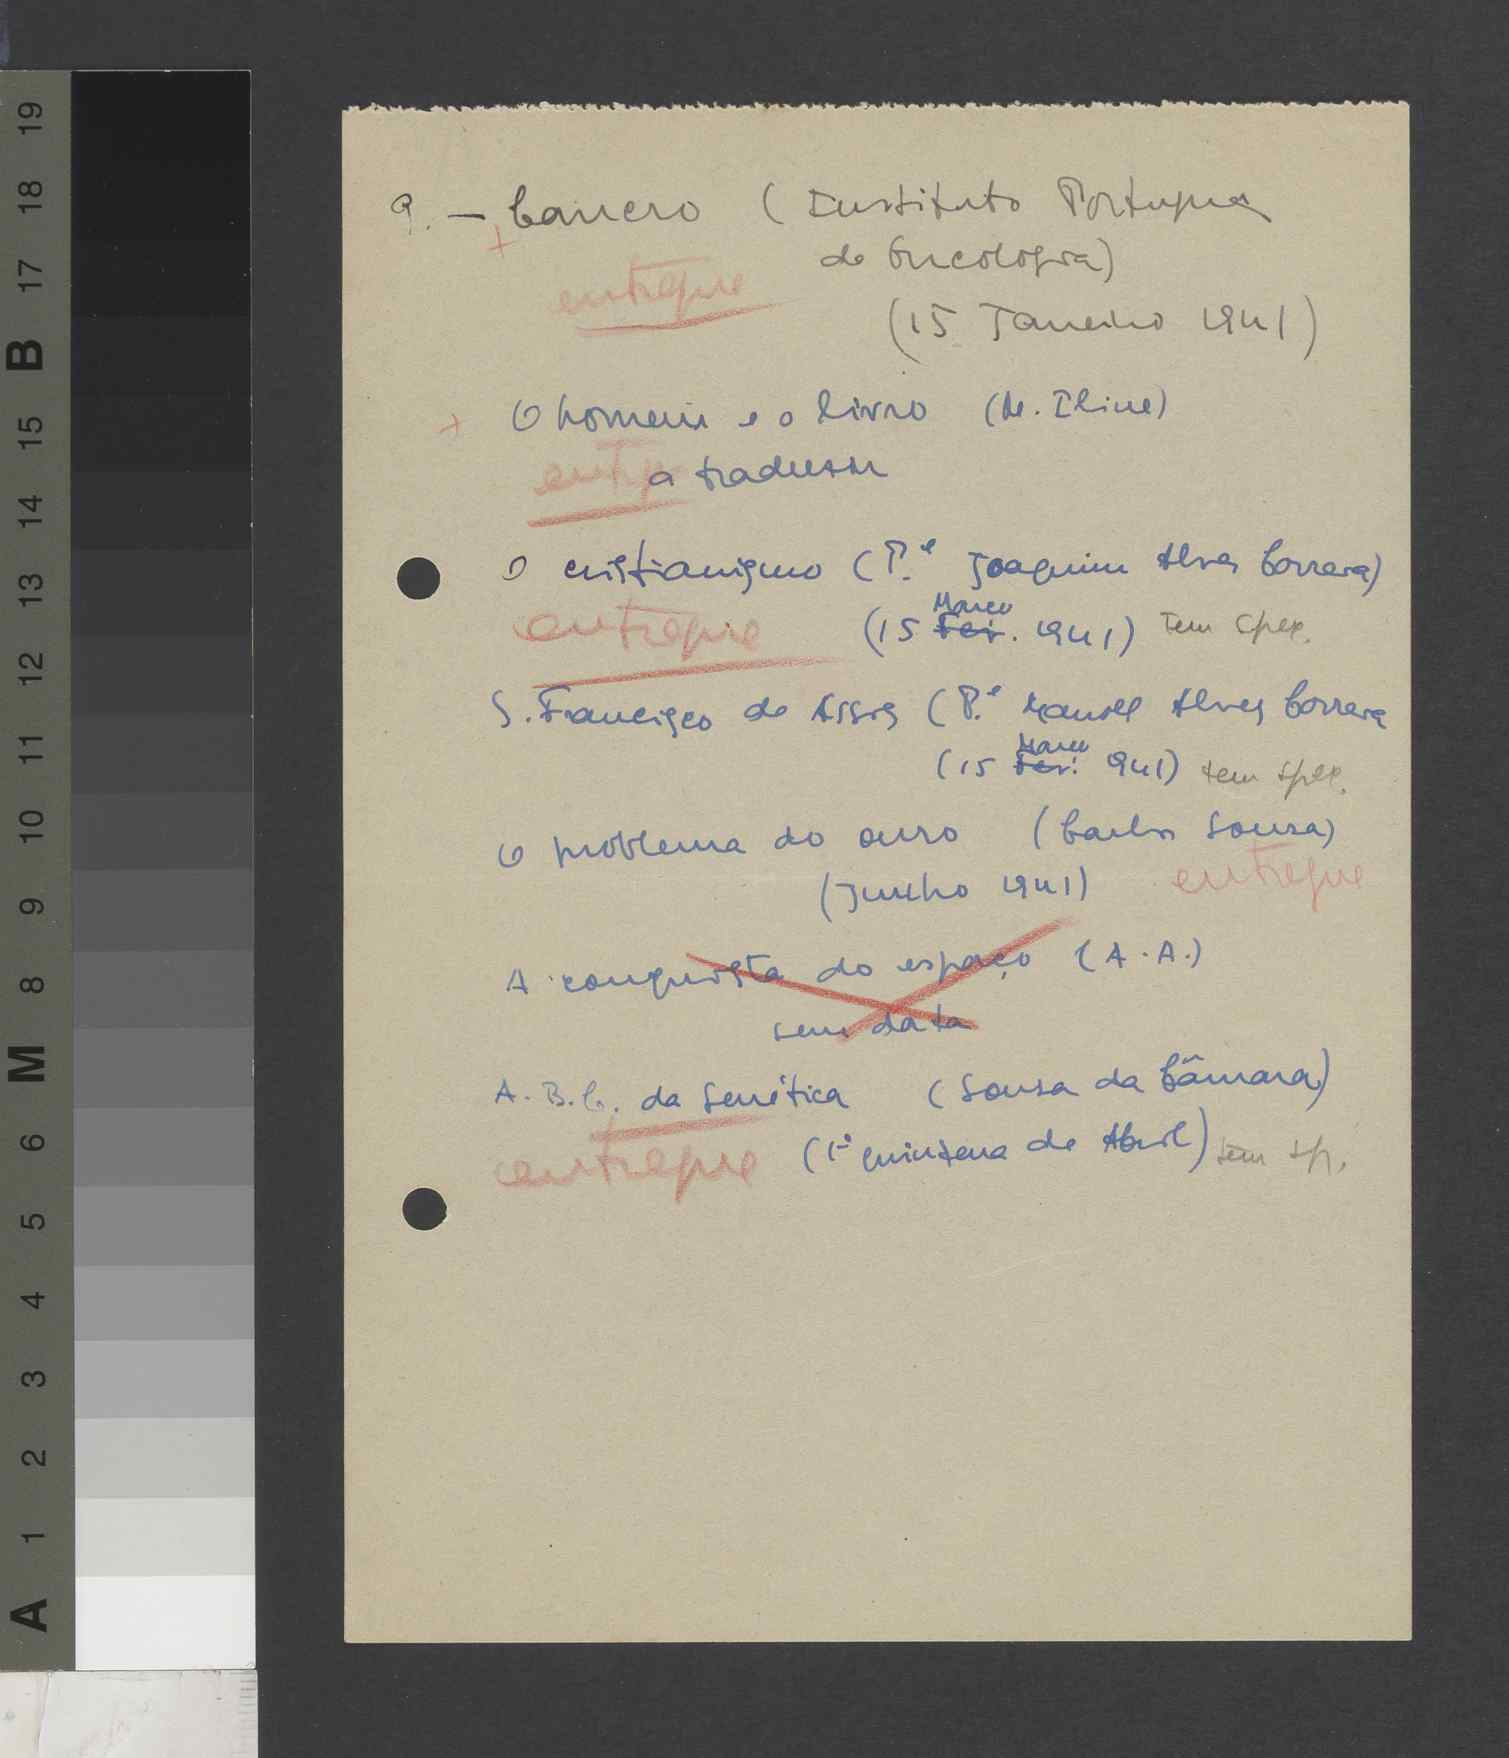 ? — Cancro (Instituto Português
de Oncologia)
+
entregue
(15 Janeiro 1941)
+ O homem e o livro (M. Iline)
entregue a traduzir
O cristianismo (P.e Joaquim Alves Correia)
Março
entregue (15 Fev. 1941) tem
S. Francisco de Assis (P.e Manuel Alves Correia
Março
(15 Fev. 941) tem
O problema do ouro (Carlos Sousa)
(Junho 1941) entregue
A conquista do espaço (A.A.)
sem data
A.B.C. da Genética (Sousa da Câmara)
entregue (1ª quinzena de Abril) tem
19
18
17
B
15
14
13
12
11
10
9
8
M
6
5
4
3
2
1
A